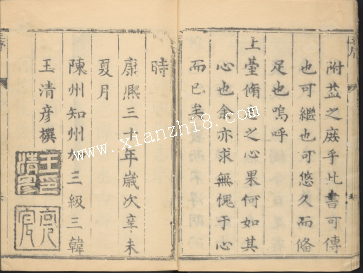 附益之庶乎此書可傳
也可繼也可悠久而脩
足也嗚呼
上臺脩
之心果何如其
心也余亦求無愧于心
而已矣
時
康熙三十年歲次辛未
夏月
陳州知州加三級三韓
王清彥撰
www.xianzhi8.com